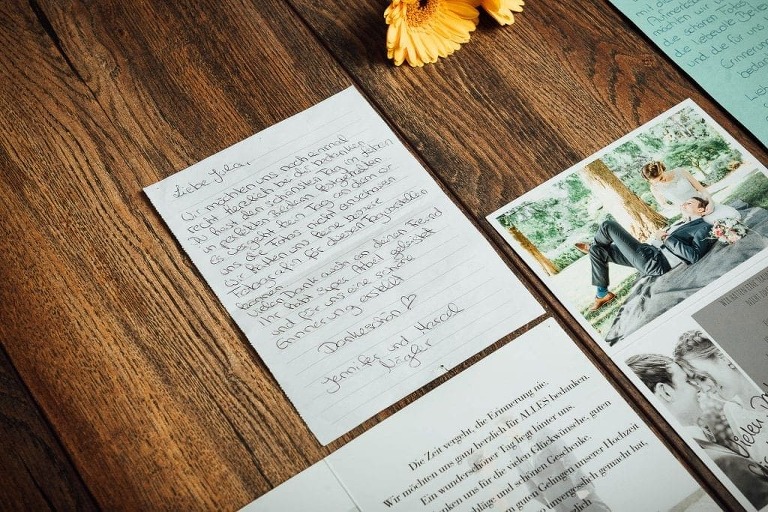 Liebe Julia,
Wir möchten uns noch einmal
recht herzlich bei dir bedanken.
Du hast den schönsten Tag im Leben
in perfekten Bildern festgehalten
es vergeht kein Tag an dem wir
uns die Fotos nicht anschauen.
Wir hätten uns keine bessere
Fotografin für diesen Tag vorstellen
können.
Vielen Dank auch an deinen Freund
Ihr habt super Arbeit geleistet
und für uns eine schöne
Erinnerung erstellt
Dankeschön ♡
Jennifer und Marcel
Die Zeit vergeht, die Erinnerung nie.
Wir möchten uns ganz herzlich für ALLES bedanken.
Ein wunderschöner Tag liegt hinter uns.
ken uns für die vielen Glückwünsche, guten
schläge und schönen Geschenke.
um guten Gelingen unserer Hochzeit
unvergesslich gemacht hat.
Vielen
die schönen
und die für uns
Erinnerung